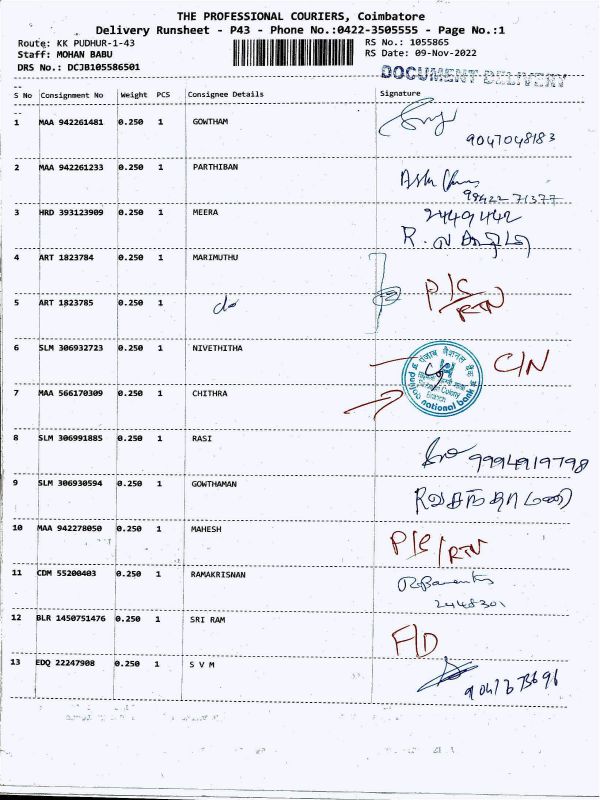 THE PROFESSIONAL COURIERS, Coimbatore
Delivery Runsheet - P43 - Phone No.:0422-3505555 - Page No.:1
Route: KK PUDHUR-1-43 RS No.: 1055865
Staff: MOHAN BABU RS Date: 09-Nov-2022
DRS No.: DCJB105586501
DOCUMENT DELIVERY
S No Consignment No Weight PCS Consignee Details Signature
1 MAA 942261481 0.250 1 GOWTHAM
9047048183
2 MAA 942261233 0.250 1 PARTHIBAN
99422 71377
3 HRD 393123909 0.250 1 MEERA 2449442
4 ART 1823784 0.250 1 MARIMUTHU
P/C
RTN
5 ART 1823785 0.250 1 do
6 SLM 306932723 0.250 1 NIVETHITHA C/N
पंजाब नैशनल बैंक
punjab national bank
Branch
7 MAA 566170309 0.250 1 CHITHRA
8 SLM 306991885 0.250 1 RASI 9994919798
9 SLM 306930594 0.250 1 GOWTHAMAN
10 MAA 942278050 0.250 1 MAHESH P/C/RTN
11 CDM 55200403 0.250 1 RAMAKRISNAN
2448301
12 BLR 1450751476 0.250 1 SRI RAM F/D
13 EDQ 22247908 0.250 1 S V M